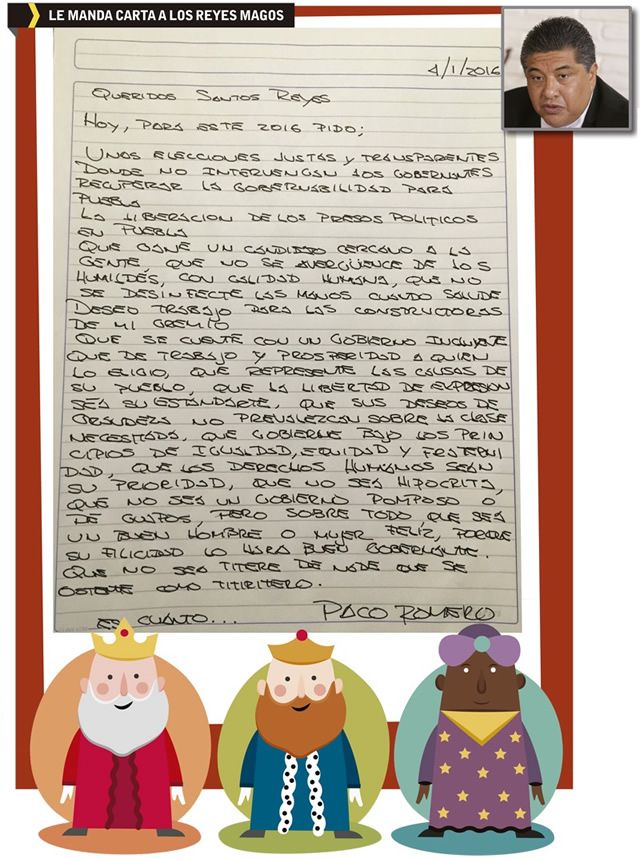 LE MANDA CARTA A LOS REYES MAGOS
4/1/2016
QUERIDOS SANTOS REYES
HOY, PARA ESTE 2016 PIDO;
UNAS ELECCIONES JUSTAS Y TRANSPARENTES
DONDE NO INTERVENGAN LOS GOBERNANTES
RECUPERAR LA GOBERNABILIDAD PARA
PUEBLA
LA LIBERACION DE LOS PRESOS POLITICOS
EN PUEBLA
QUE GANE UN CANDIDATO CERCANO A LA
GENTE QUE NO SE AVERGÜENCE DE LOS
HUMILDES, CON CALIDAD HUMANA, QUE NO
SE DESINFECTE LAS MANOS CUANDO SALUDE
DESEO TRABAJO PARA LAS CONSTRUCTORAS
DE MI GREMIO
QUE SE CUENTE CON UN GOBIERNO INCLUYENTE
QUE DE TRABAJO Y PROSPERIDAD A QUIEN
LO ELIGIO, QUE REPRESENTE LAS CAUSAS DE
SU PUEBLO, QUE LA LIBERTAD DE EXPRESION
SEA SU ESTANDARTE, QUE SUS DESEOS DE
GRANDEZA NO PREVALEZCAN SOBRE LA CLASE
NECESITADA, QUE GOBIERNE BAJO LOS PRIN
CIPIOS DE IGUALDAD, EQUIDAD Y FRATERNI
DAD, QUE LOS DERECHOS HUMANOS SEAN
SU PRIORIDAD, QUE NO SEA HIPOCRITA,
QUE NO SEA UN GOBIERNO POMPOSO O
DE GUAPOS, PERO SOBRE TODO QUE SEA
UN BUEN HOMBRE O MUJER FELIZ, PORQUE
SU FILICIDAD LO HARA BUEN GOBERNANTE.
QUE NO SEA TITERE DE NADIE QUE SE
OSTENTE COMO TITIRITERO.
ES CUANTO... PACO ROMERO